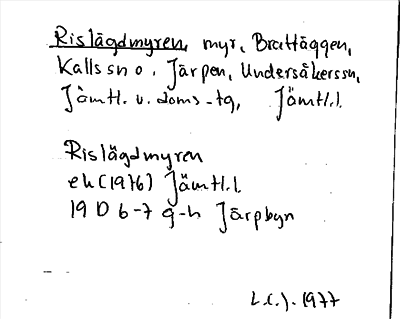 Rislägdmyren, myr, Brattäggen,
Kalls sn o. Järpen, Undersåkerssn,
Jämtl. v. doms-tg, Jämtl.l.
Rislägdmyren
ek (1976) Jämtl.l.
19 D 6-7 g-h Järpbyn
1977